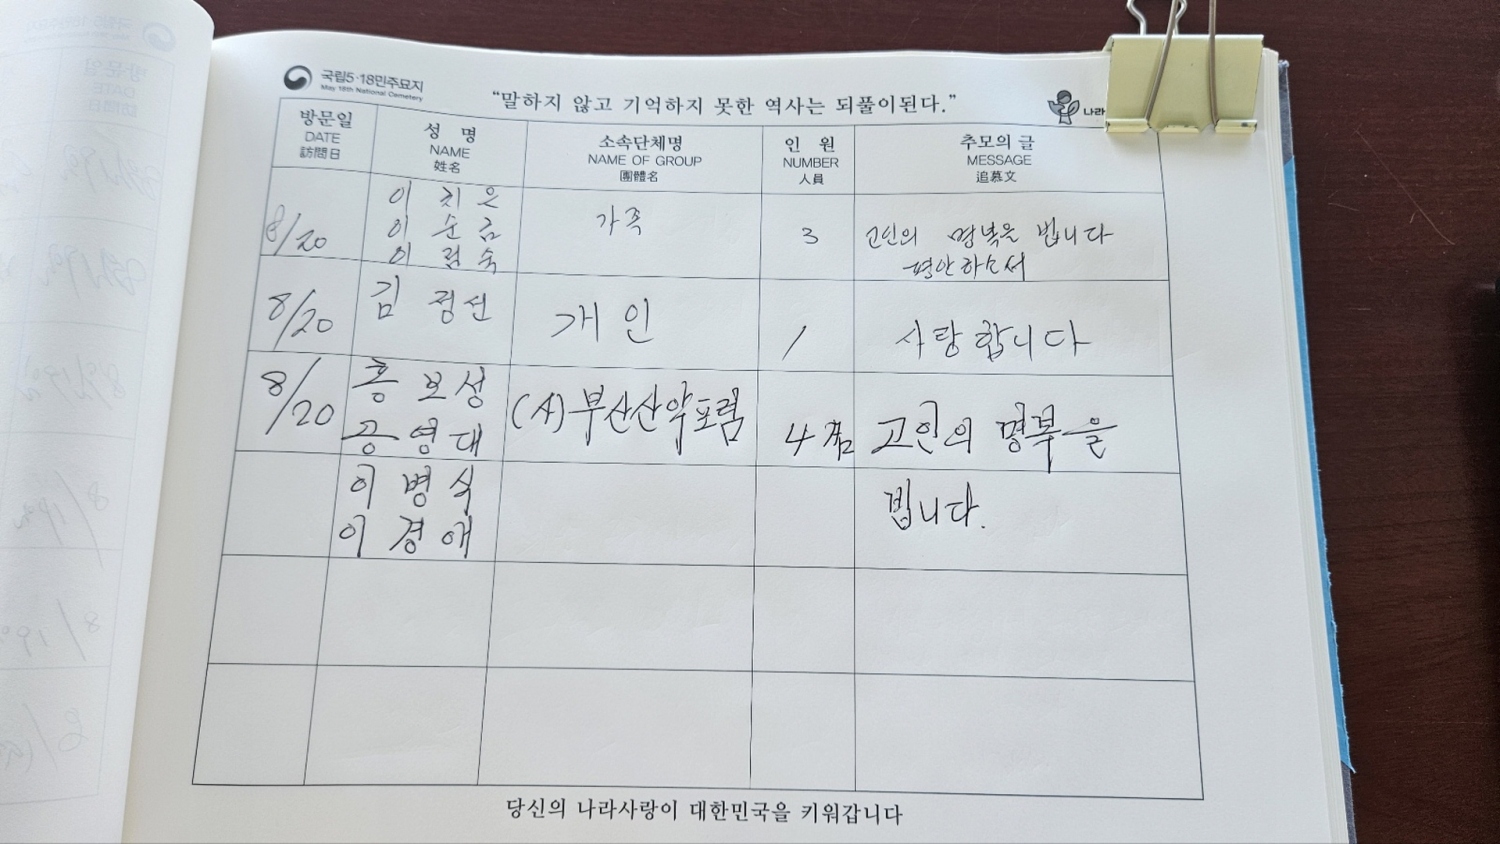 국립5·18민주묘지
May 18th National Cemetery
"말하지 않고 기억하지 못한 역사는 되풀이된다."
나라
방문일 성 명 소속단체명 인 원 추모의 글
DATE NAME NAME OF GROUP NUMBER MESSAGE
訪問日 姓名 團體名 人員 追慕文
8/20 이 가족 3 고인의 명복을 빕니다
이 순금 평안하소서
이
8/20 김 정선 개인 1 사랑합니다
8/20 홍보성 (사)부산산악포럼 4 고인의 명복을
공영대
이병식 빕니다.
이경애
당신의 나라사랑이 대한민국을 키워갑니다